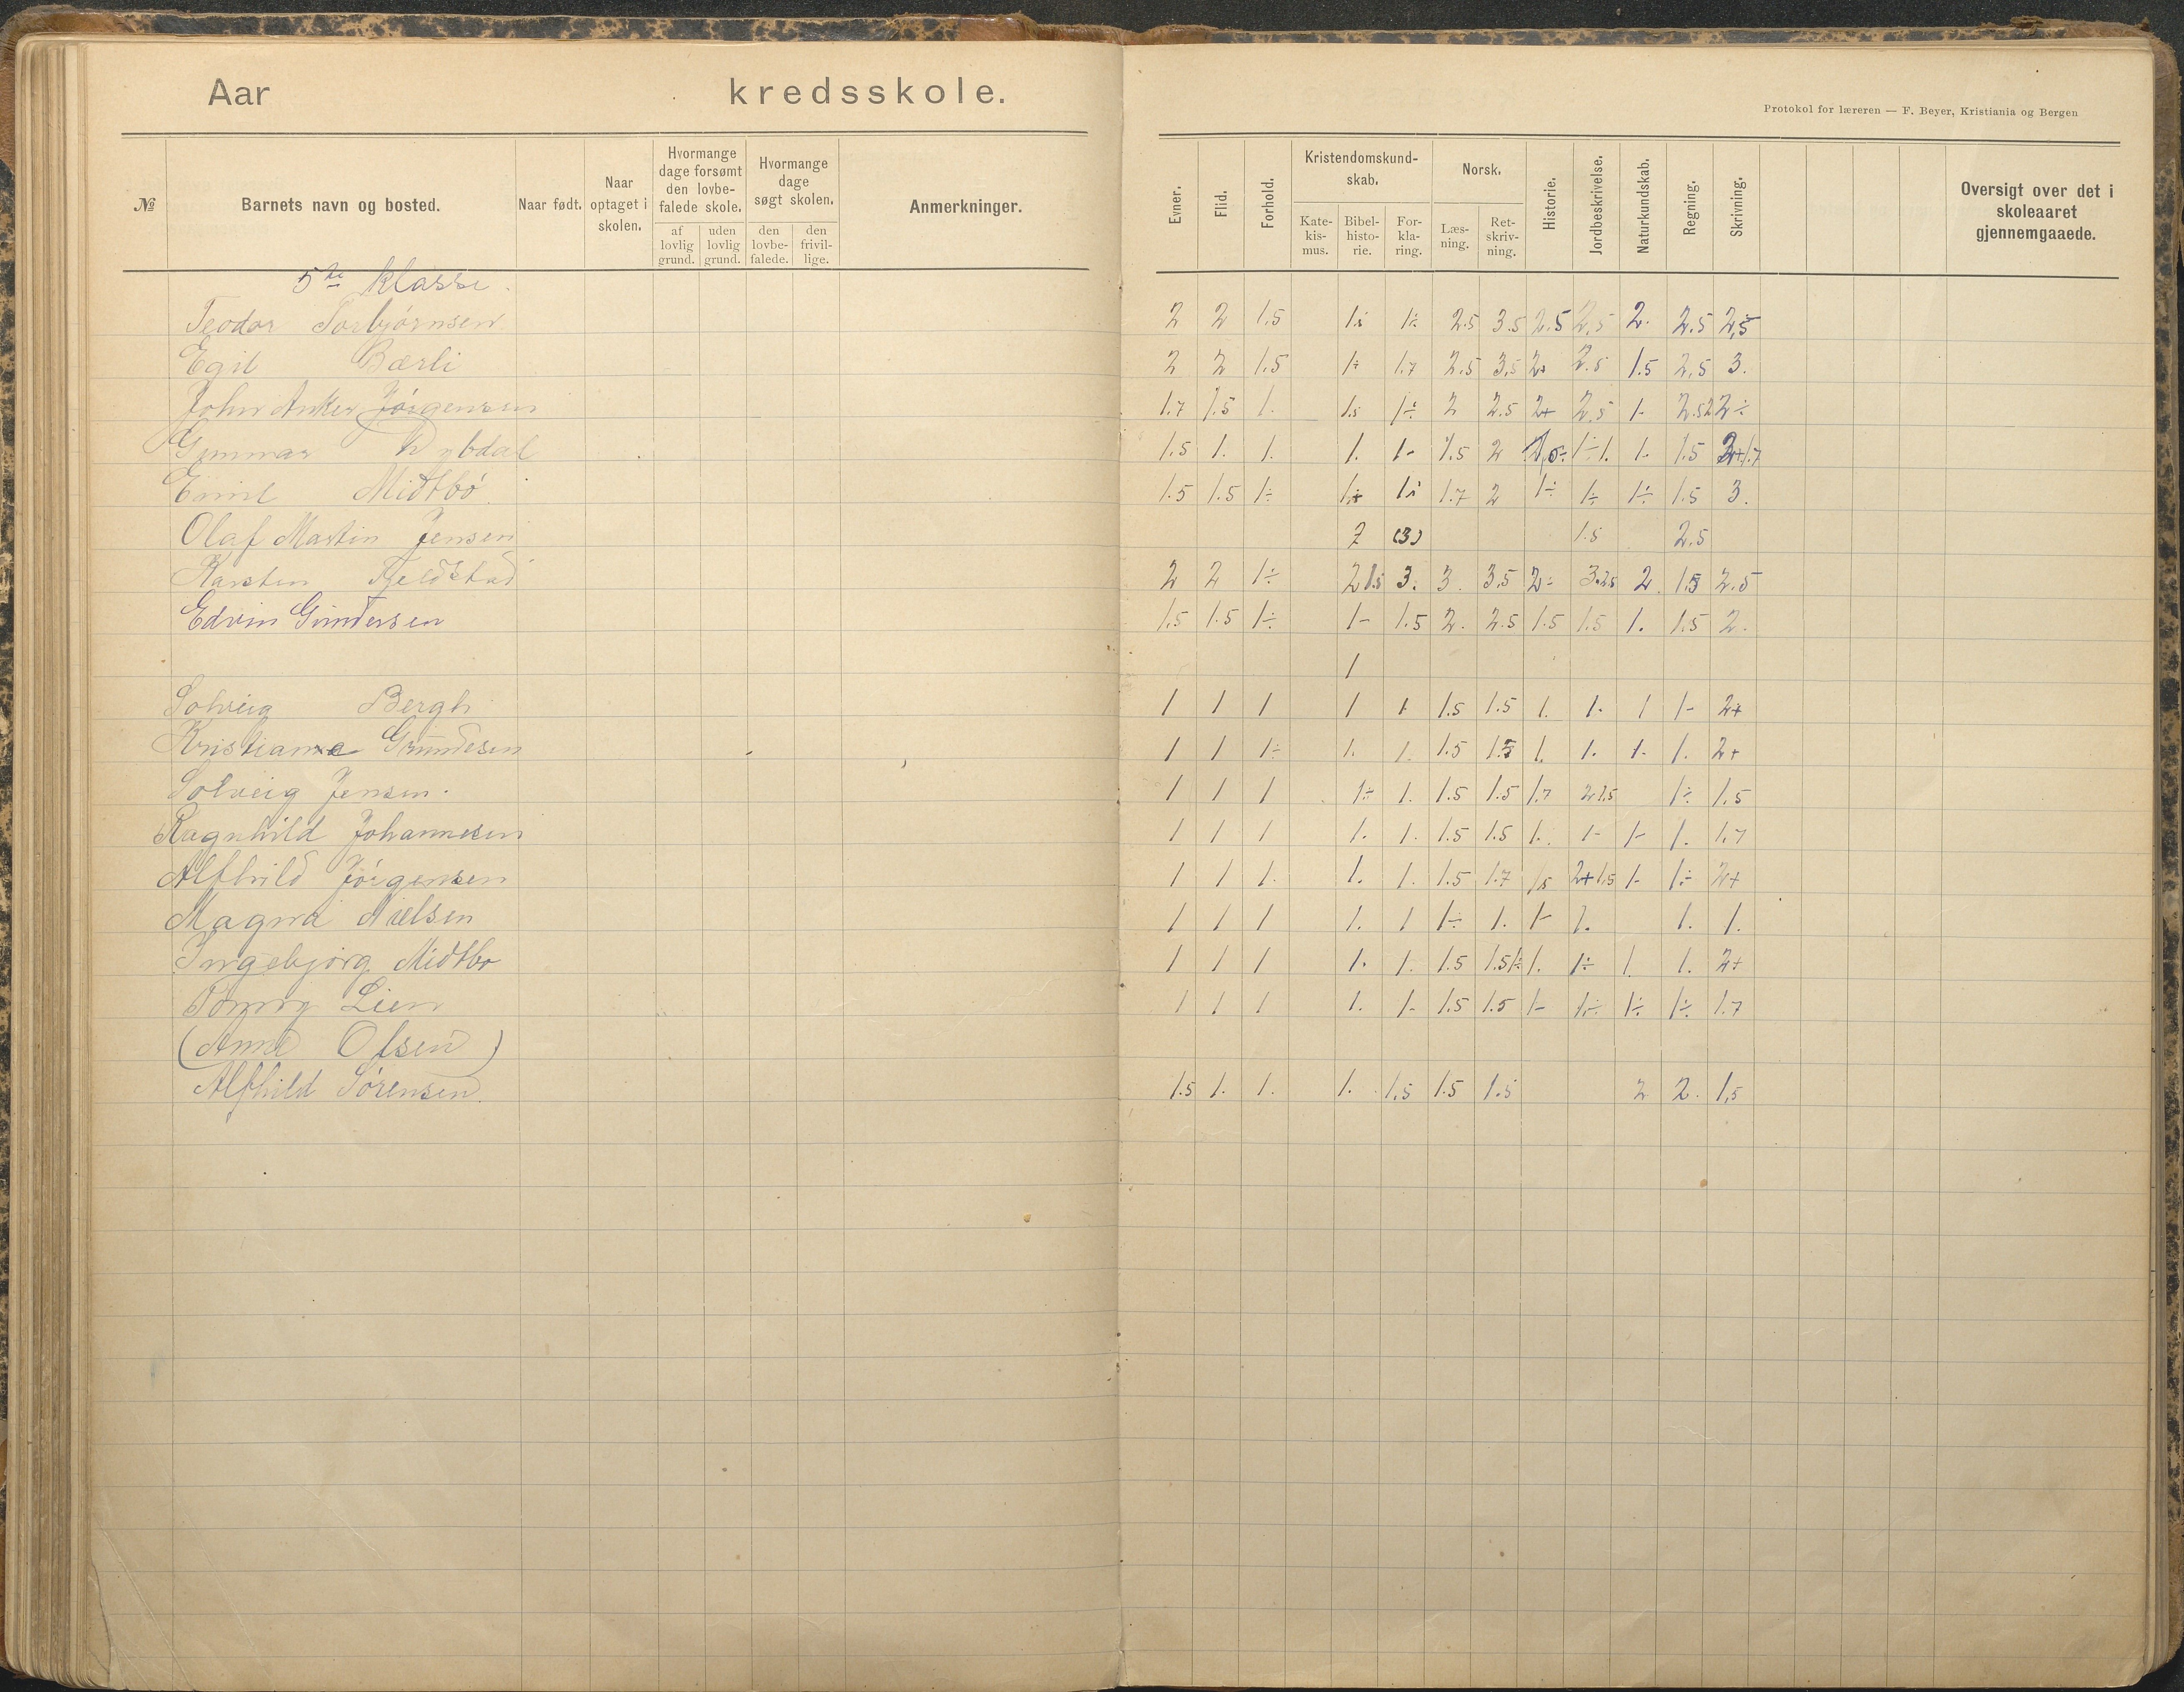 Aar kredsskole.
Protokol for læreren — F. Beyer, Kristiania og Bergen
№ Barnets navn og bosted. Naar født. Naar optaget i skolen. Hvormange dage forsømt den lovbefalede skole. af lovlig grund. uden lovlig grund. Hvormange dage søgt skolen. den lovbefalede. den frivillige. Anmerkninger. Evner. Flid. Forhold. Kristendomskundskab. Katekismus. Bibelhistorie. Forklaring. Norsk. Læsning. Retskrivning. Historie. Jordbeskrivelse. Naturkundskab. Regning. Skrivning. Oversigt over det i skoleaaret gjennemgaaede.
5te klasse.
Teodor Torbjørnsen 2 2 1.5 1÷ 1÷ 2.5 3.5 2.5 2,5 2. 2.5 2,5
Egil Bærli 2 2 1.5 1÷ 1.7 2.5 3,5 2+ 2.5 1.5 2,5 3.
John Anker Jørgensen 1.7 1.5 1. 1.5 1÷ 2 2.5 2+ 2,5 1- 2.5 2 2÷
Gunnar 1.5 1. 1. 1. 1- 1.5 2 1÷ 1. 1. 1.5 1.7
Emil Midtbø 1.5 1.5 1÷ 1+ 1÷ 1.7 2 1÷ 1÷ 1÷ 1.5 3.
Olaf Martin Jensen 2 (3) 1.5 2.5
Karsten Fjeldstad 2 2 1÷ 2 1.5 3. 3. 3.5 2÷ 3. 2.5 2. 1.5 2.5
Edvin Gundersen 1.5 1.5 1÷ 1- 1.5 2. 2.5 1.5 1.5 1. 1.5 2.
1
Solveig Bergh 1 1 1 1 1 1.5 1.5 1. 1. 1 1- 2+
Kristiane Gundesen 1 1 1÷ 1. 1. 1.5 1.5 1. 1. 1. 1. 2+
Solveig Jensen. 1 1 1 1÷ 1. 1.5 1.5 1.7 2 1.5 1÷ 1.5
Ragnhild Johannesen 1 1 1 1. 1. 1.5 1.5 1. 1- 1- 1. 1.7
Alfhild Jørgensen 1 1 1. 1. 1. 1.5 1.7 1.5 2+ 1.5 1- 1÷ 2+
Magna Nielsen 1 1 1 1. 1 1÷ 1. 1- 1. 1. 1.
Ingebjørg Midtbø 1 1 1 1. 1. 1.5 1.5 1÷ 1. 1÷ 1. 1. 2+
Lien 1 1 1 1. 1- 1.5 1.5 1- 1÷ 1÷ 1÷ 1.7
(Anne Olsen)
Alfhild Sørensen. 1.5 1. 1. 1. 1.5 1.5 1.5 2 2. 1,5